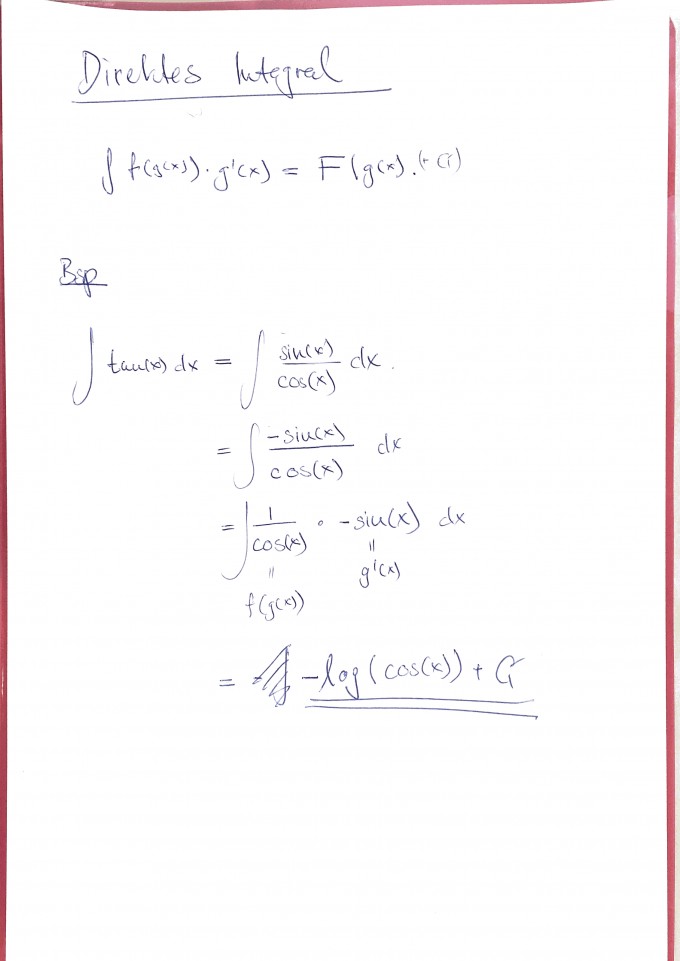 Direktes Integral
∫ f(g(x)) · g'(x) = F(g(x). (+ C)
Bsp
∫ tan(x) dx = ∫ sin(x)/cos(x) dx.
= ∫ -sin(x)/cos(x) dx
= ∫ 1/cos(x) · -sin(x) dx
= f(g(x)) = g'(x)
= -log(cos(x)) + C